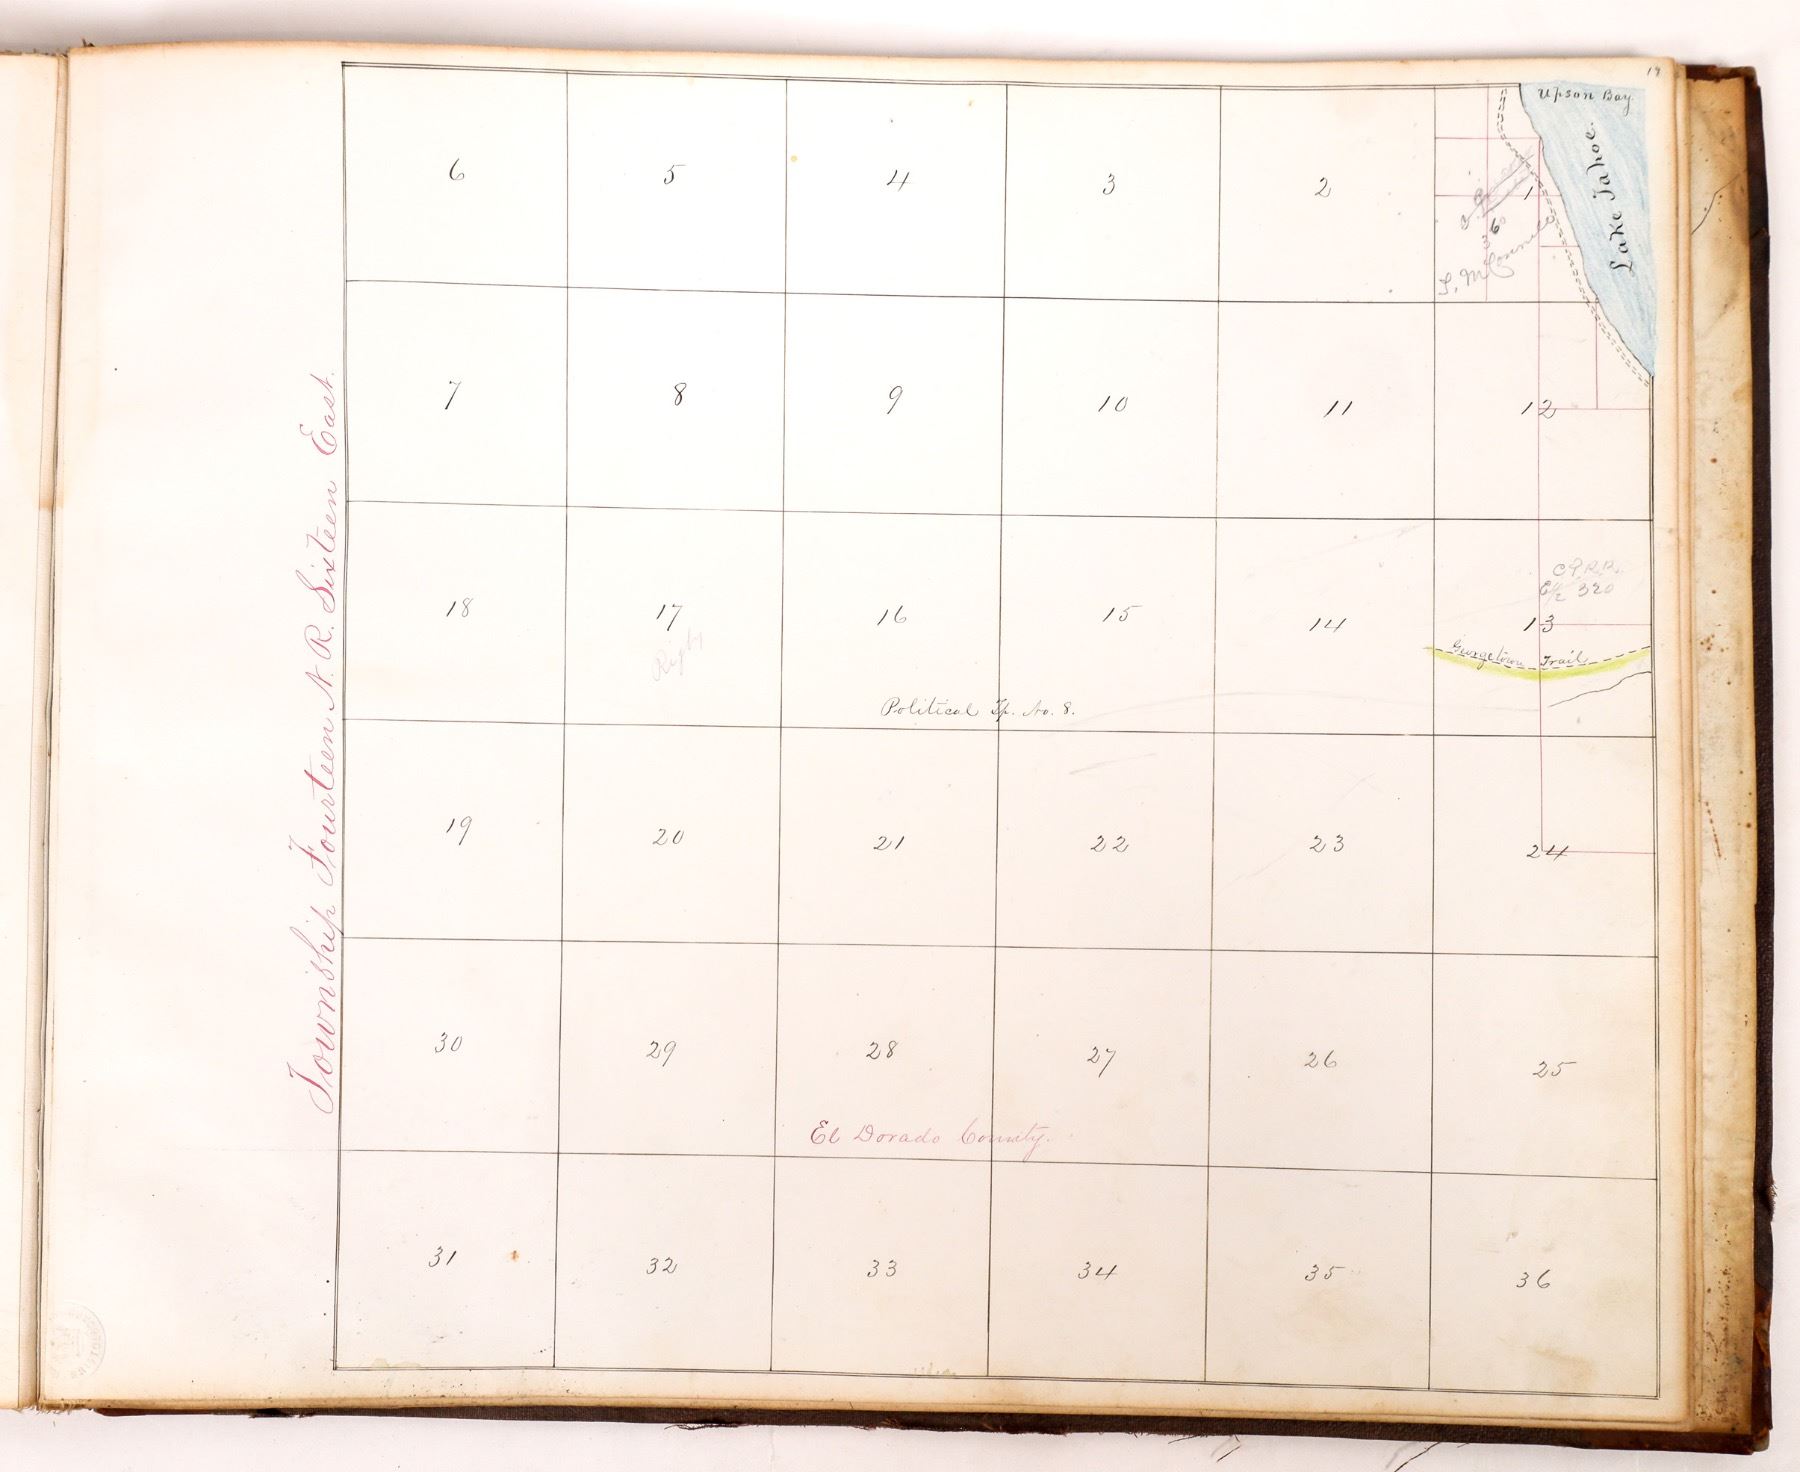 18
Upson Bay
Lake Tahoe.
Township Fourteen N. R. Sixteen East.
6 5 4 3 2 1
360
T. McConnell
7 8 9 10 11 12
C.P.R.R.
E 1/2 320
18 17 16 15 14 13
Rigby
Georgetown Trail
Political Tp. No. 8.
19 20 21 22 23 24
30 29 28 27 26 25
El Dorado County.
31 32 33 34 35 36